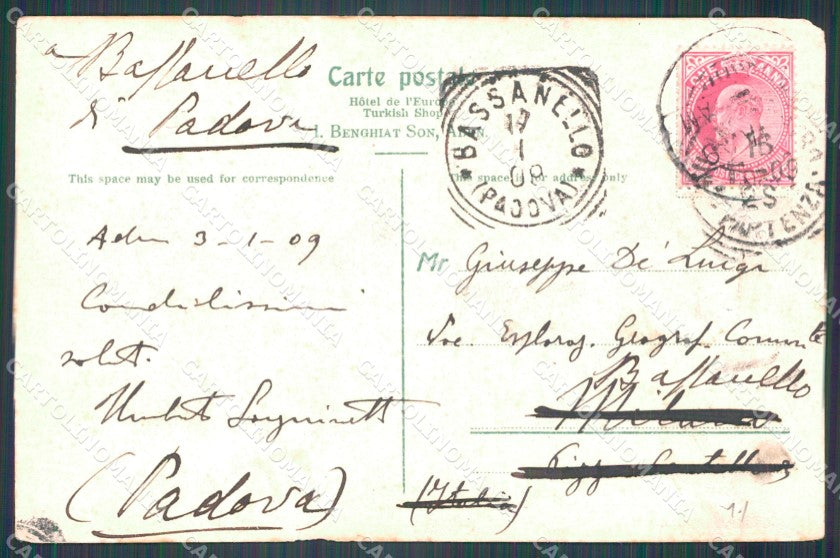 a Bassanello
di Padova
Carte postale
Hôtel de l'Europe
Turkish Shop
I. BENGHIAT SON, ADEN.
BASSANELLO
17
1
09
(PADOVA)
This space may be used for correspondence
This space is for address only
Aden 3-1-09
Cordialissimi
salut.
Umberto
(Padova)
Mr Giuseppe De' Luigi
Soc. Esploraz. Geograf. Comm
Bassanello
Milano
(Italia)
CARTOLINOMANIA